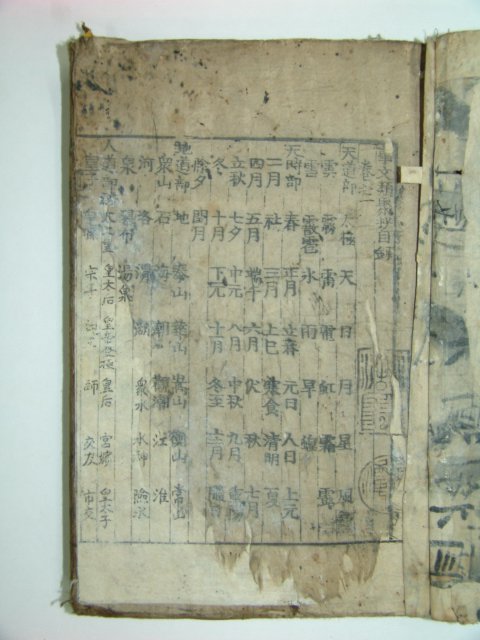 文類聚抄目錄
卷之一
天道部 太極 天 日 月 星 風
雲 霧 雷 電 虹 霜 露
雪 霰雹 氷 雨 旱
天時部 春 正月 立春 元日 人日 上元
二月 社 三月 上巳 寒食 清明 夏
四月 五月 端午 六月 伏 秋 七月
立秋 七夕 中元 八月 中秋 九月 重陽
冬 十月 下元 十一月 冬至 十二月 臘日
除夕 閏月
地道部 地 泰山 華山 嵩山 衡山 常山
衆山 石 海 潮 觀潮 江 淮
河 洛 渭 湖 衆水 水神 險水
泉 瀑布 湯泉
人道部 皇太后 皇帝登極 皇后 宮嬪 皇太子
皇子 宗子 師 交友 市交